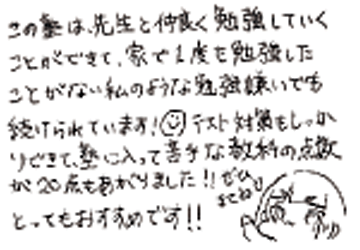 この塾は、先生と仲良く勉強していく
ことができて、家で1度も勉強した
ことがない私のような勉強嫌いでも
続けられています!テスト対策もしっか
りできて、塾に入って苦手な教科の点数
が20点もあがりました!!ぜひ
とってもおすすめです!!